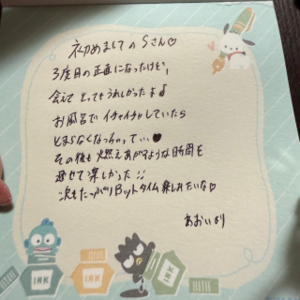 初めましてのSさん♡
3度目の正直になったけど、
会えてとってもうれしかったよ♪
お風呂でイチャイチャしていたら
とまらなくなっちゃって...♥
その後も燃えあがるような時間を
過せて楽しかった!!
次もたっぷりBットタイム楽しみたいな♡
あおいより
INK
INK
INK